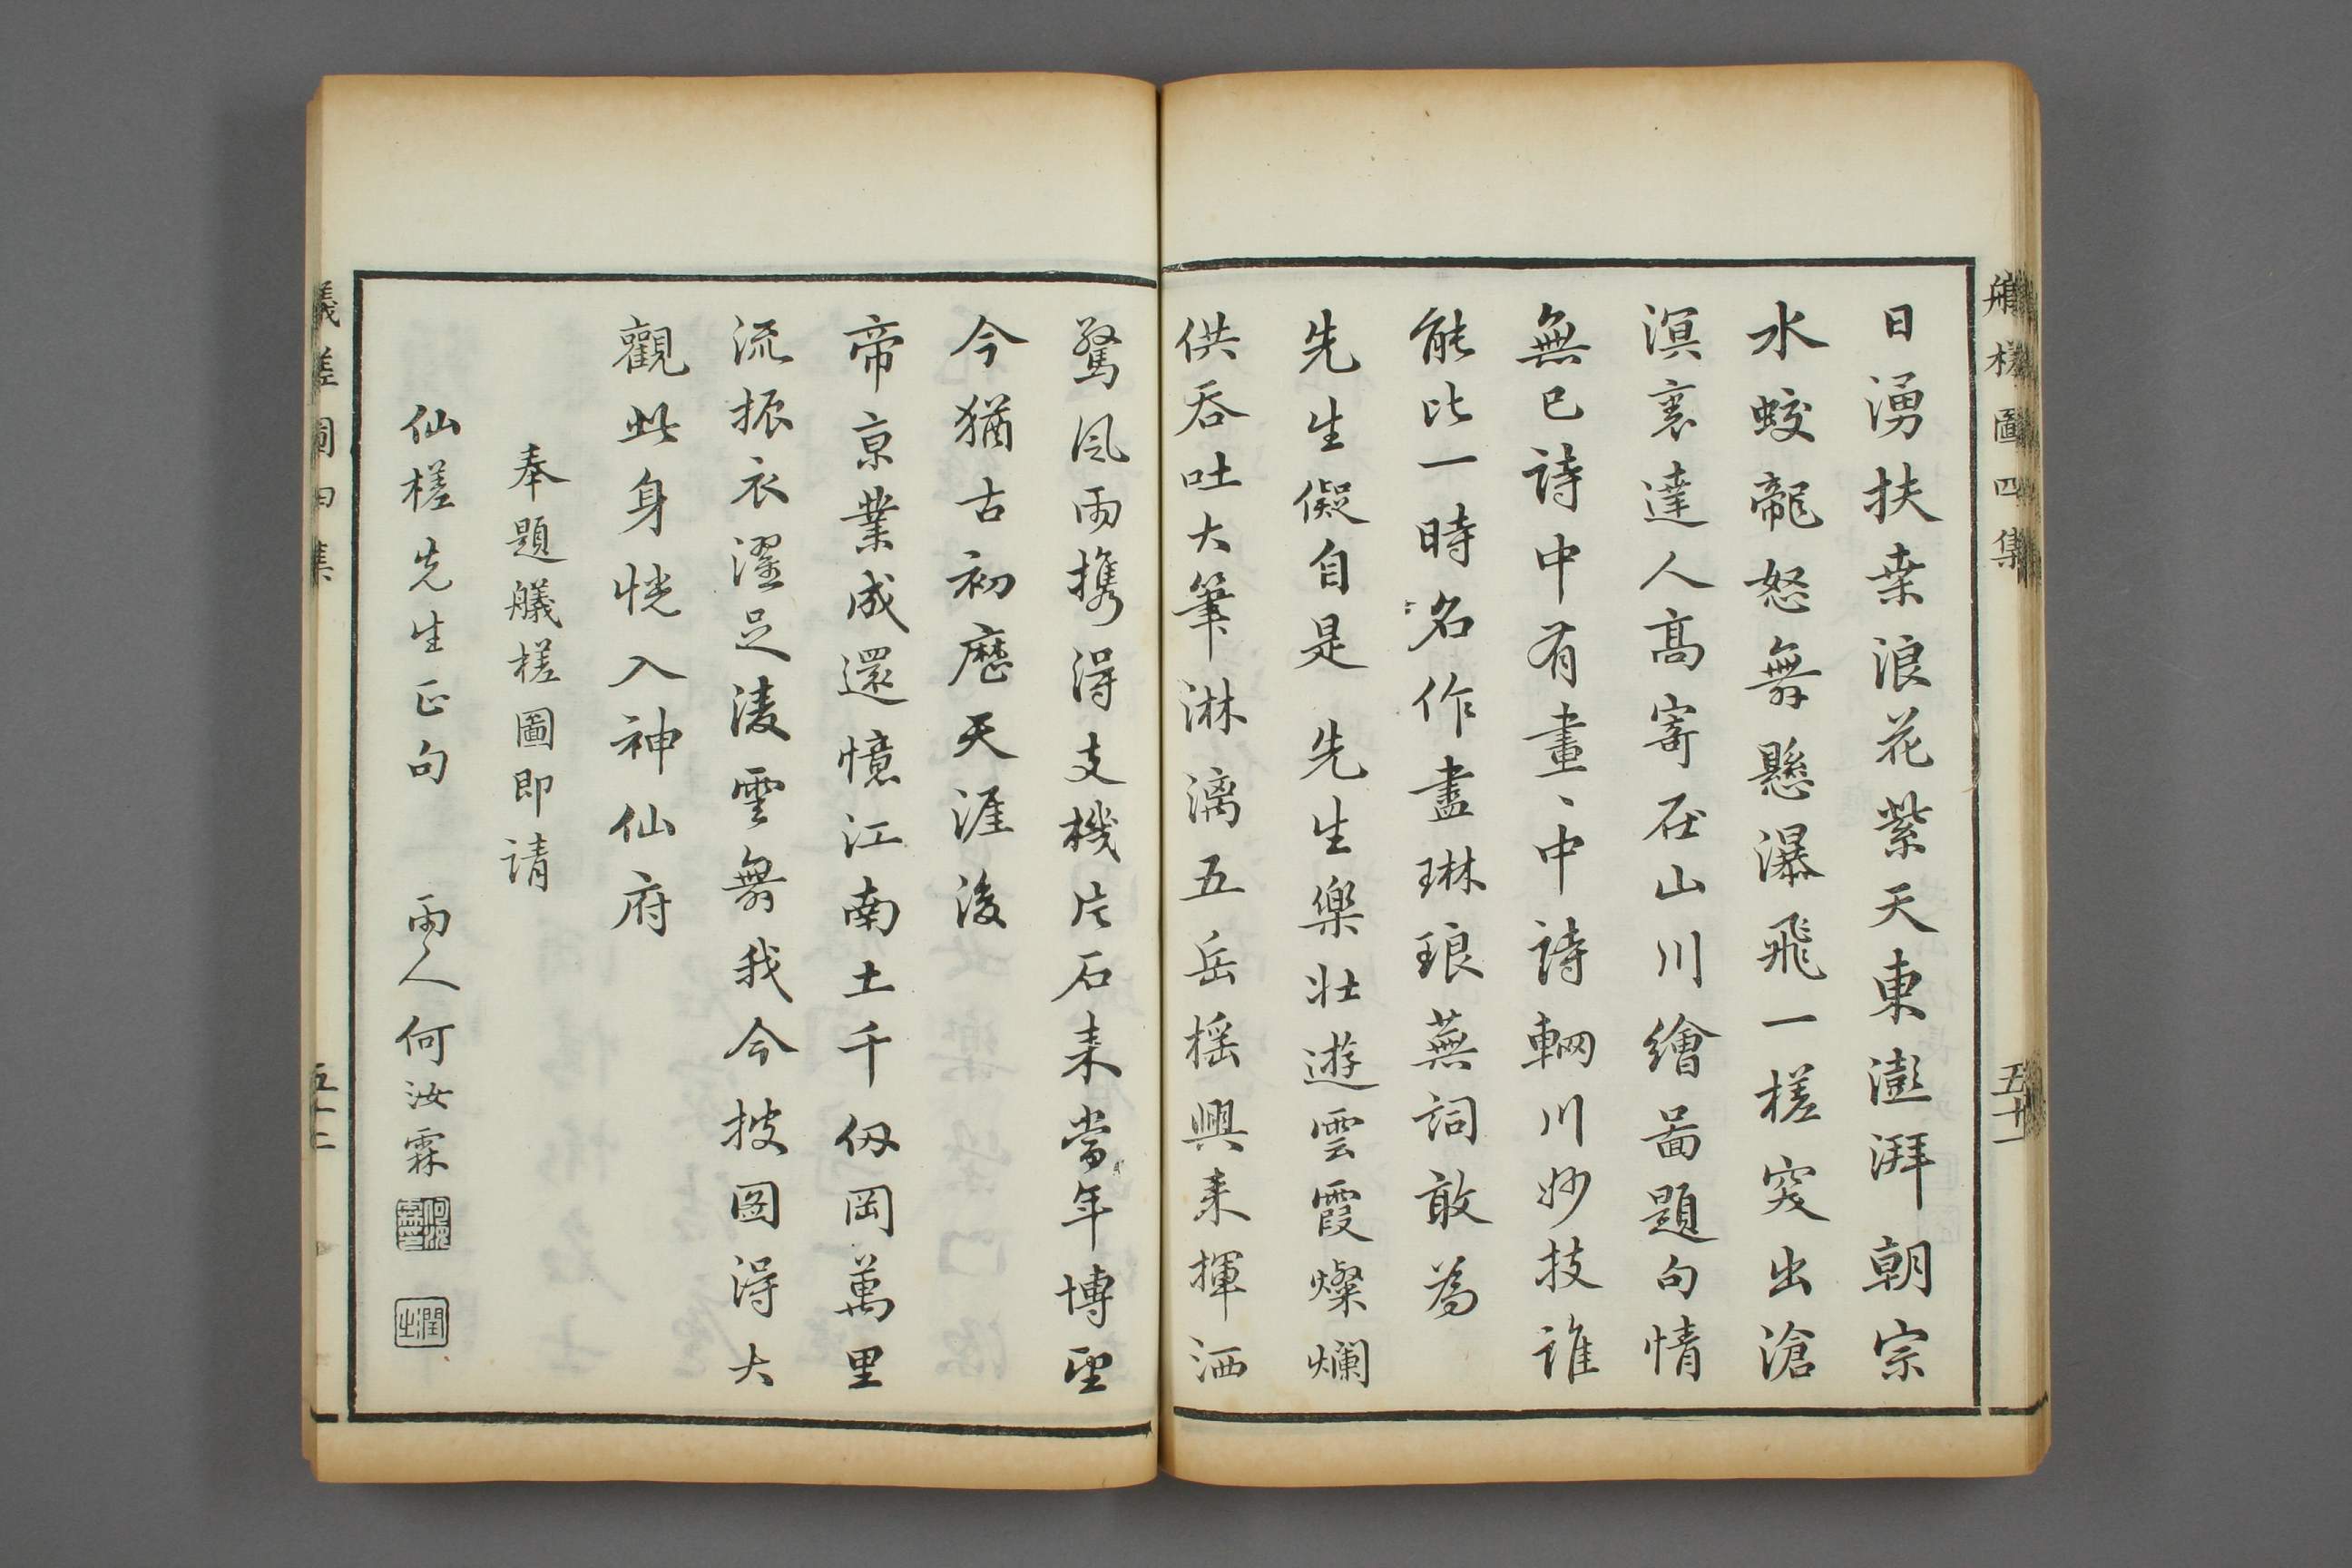 日湧扶桒浪花紫天東澎湃朝宗
水蛟龍怒舞懸瀑飛一槎突出滄
溟裏達人高寄在山川繪啚題句情
無已詩中有畫丶中詩輞川妙技誰
能比一時名作盡琳琅蕪詞敢為
先生儗自是 先生樂壯遊雲霞燦爛
供吞吐大筆淋漓五岳榣興来揮洒
驚風雨攜得支機片石来當年博望
今猶古初歷天涯後
帝京業成還憶江南土千仭岡萬里
流振衣濯足淩雲舞我今披图得大
觀此身恍入神仙府
奉題艤槎圖即请
仙槎先生正句 雨人何汝霖
何汝霖印
潤之
艤槎圖四集
五十一
艤槎圖四集
五十二